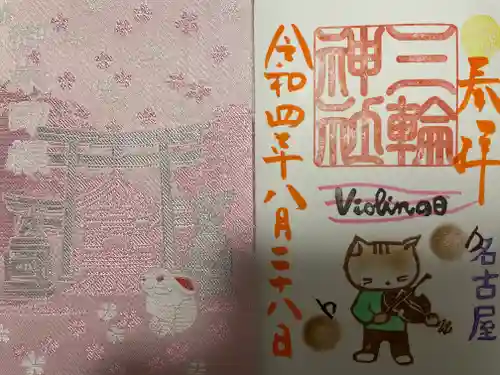 奉拝
三輪
神社
令和四年八月二十八日
Violinの日
名古屋